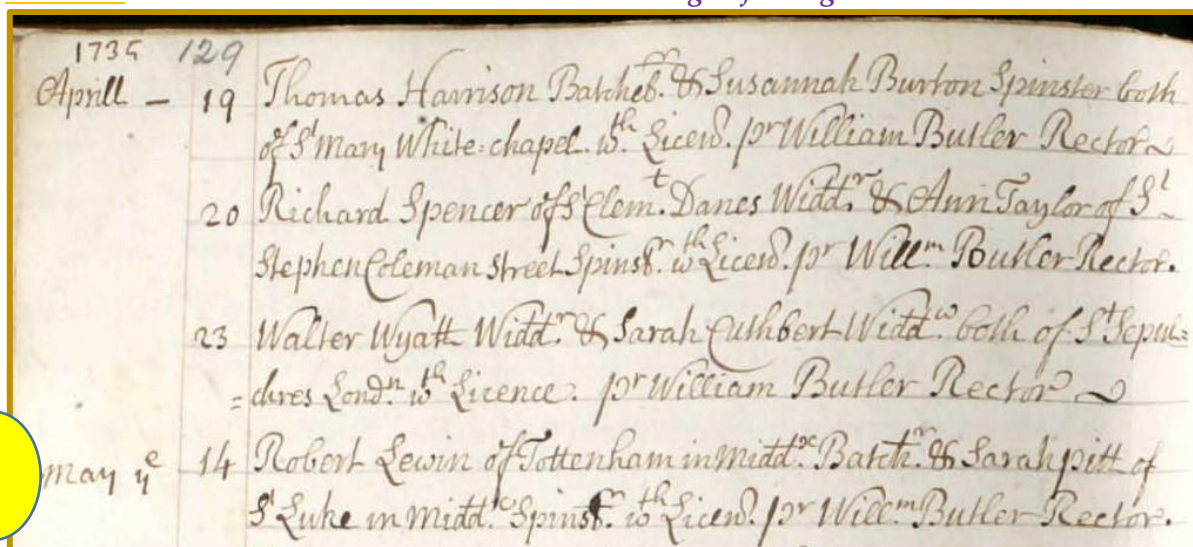 1735 129
Aprill – 19 Thomas Harrison Batchelr. & Susannah Burton Spinster both
of St Mary White=chapel. wth. Licen. pr William Butler Rector
20 Richard Spencer of St Clemt. Danes Widdr. & Ann Taylor of St
Stephen Coleman Street Spinstr. wth Licen. pr Willm Butler Rector.
23 Walter Wyatt Widdr. & Sarah Cuthbert Widdw. both of St Sepul=
=chres Londn. wth Licence. pr William Butler Rector
May ye 14 Robert Lewin of Tottenham in Middx. Batchr. & Sarah pitt of
St Luke in Middx. Spinstr. wth Licen. pr Willm Butler Rector.